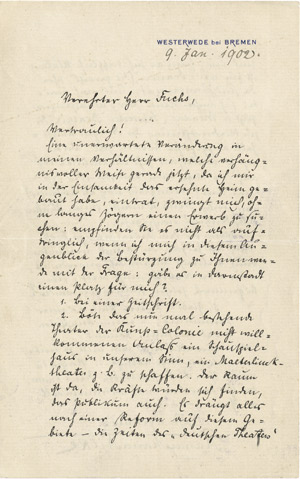 WESTERWEDE bei BREMEN
9. Jan. 1902.
Verehrter Herr Fuchs,
Vertraulich!
Eine unerwartete Veränderung in
meinen Verhältnissen, welche verhäng-
nisvoller Weise gerade jetzt, da ich mir
in der Einsamkeit das ersehnte Heim ge-
baut habe, eintrat, zwingt mich, oh-
ne langes Zögern einen Erwerb zu su-
chen: empfinden Sie es nicht als auf-
dringlich, wenn ich mich in diesem Au-
genblicke der Bestürzung zu Ihnen wen-
de mit der Frage: gibt es in Darmstadt
einen Platz für mich?
1. Bei einer Zeitschrift.
2. Böte das nun mal bestehende
Theater der Kunst-Colonie nicht will-
kommenen Anlass ein Schauspiel-
haus in unserem Sinn, ein Maeterlinck-
theater z. B. zu schaffen. Der Raum
ist da, die Kräfte würden sich finden,
das Publikum auch. Es drängt alles
nach einer Reform auf diesem Ge-
biete – die Zeiten des „deutschen Theaters"